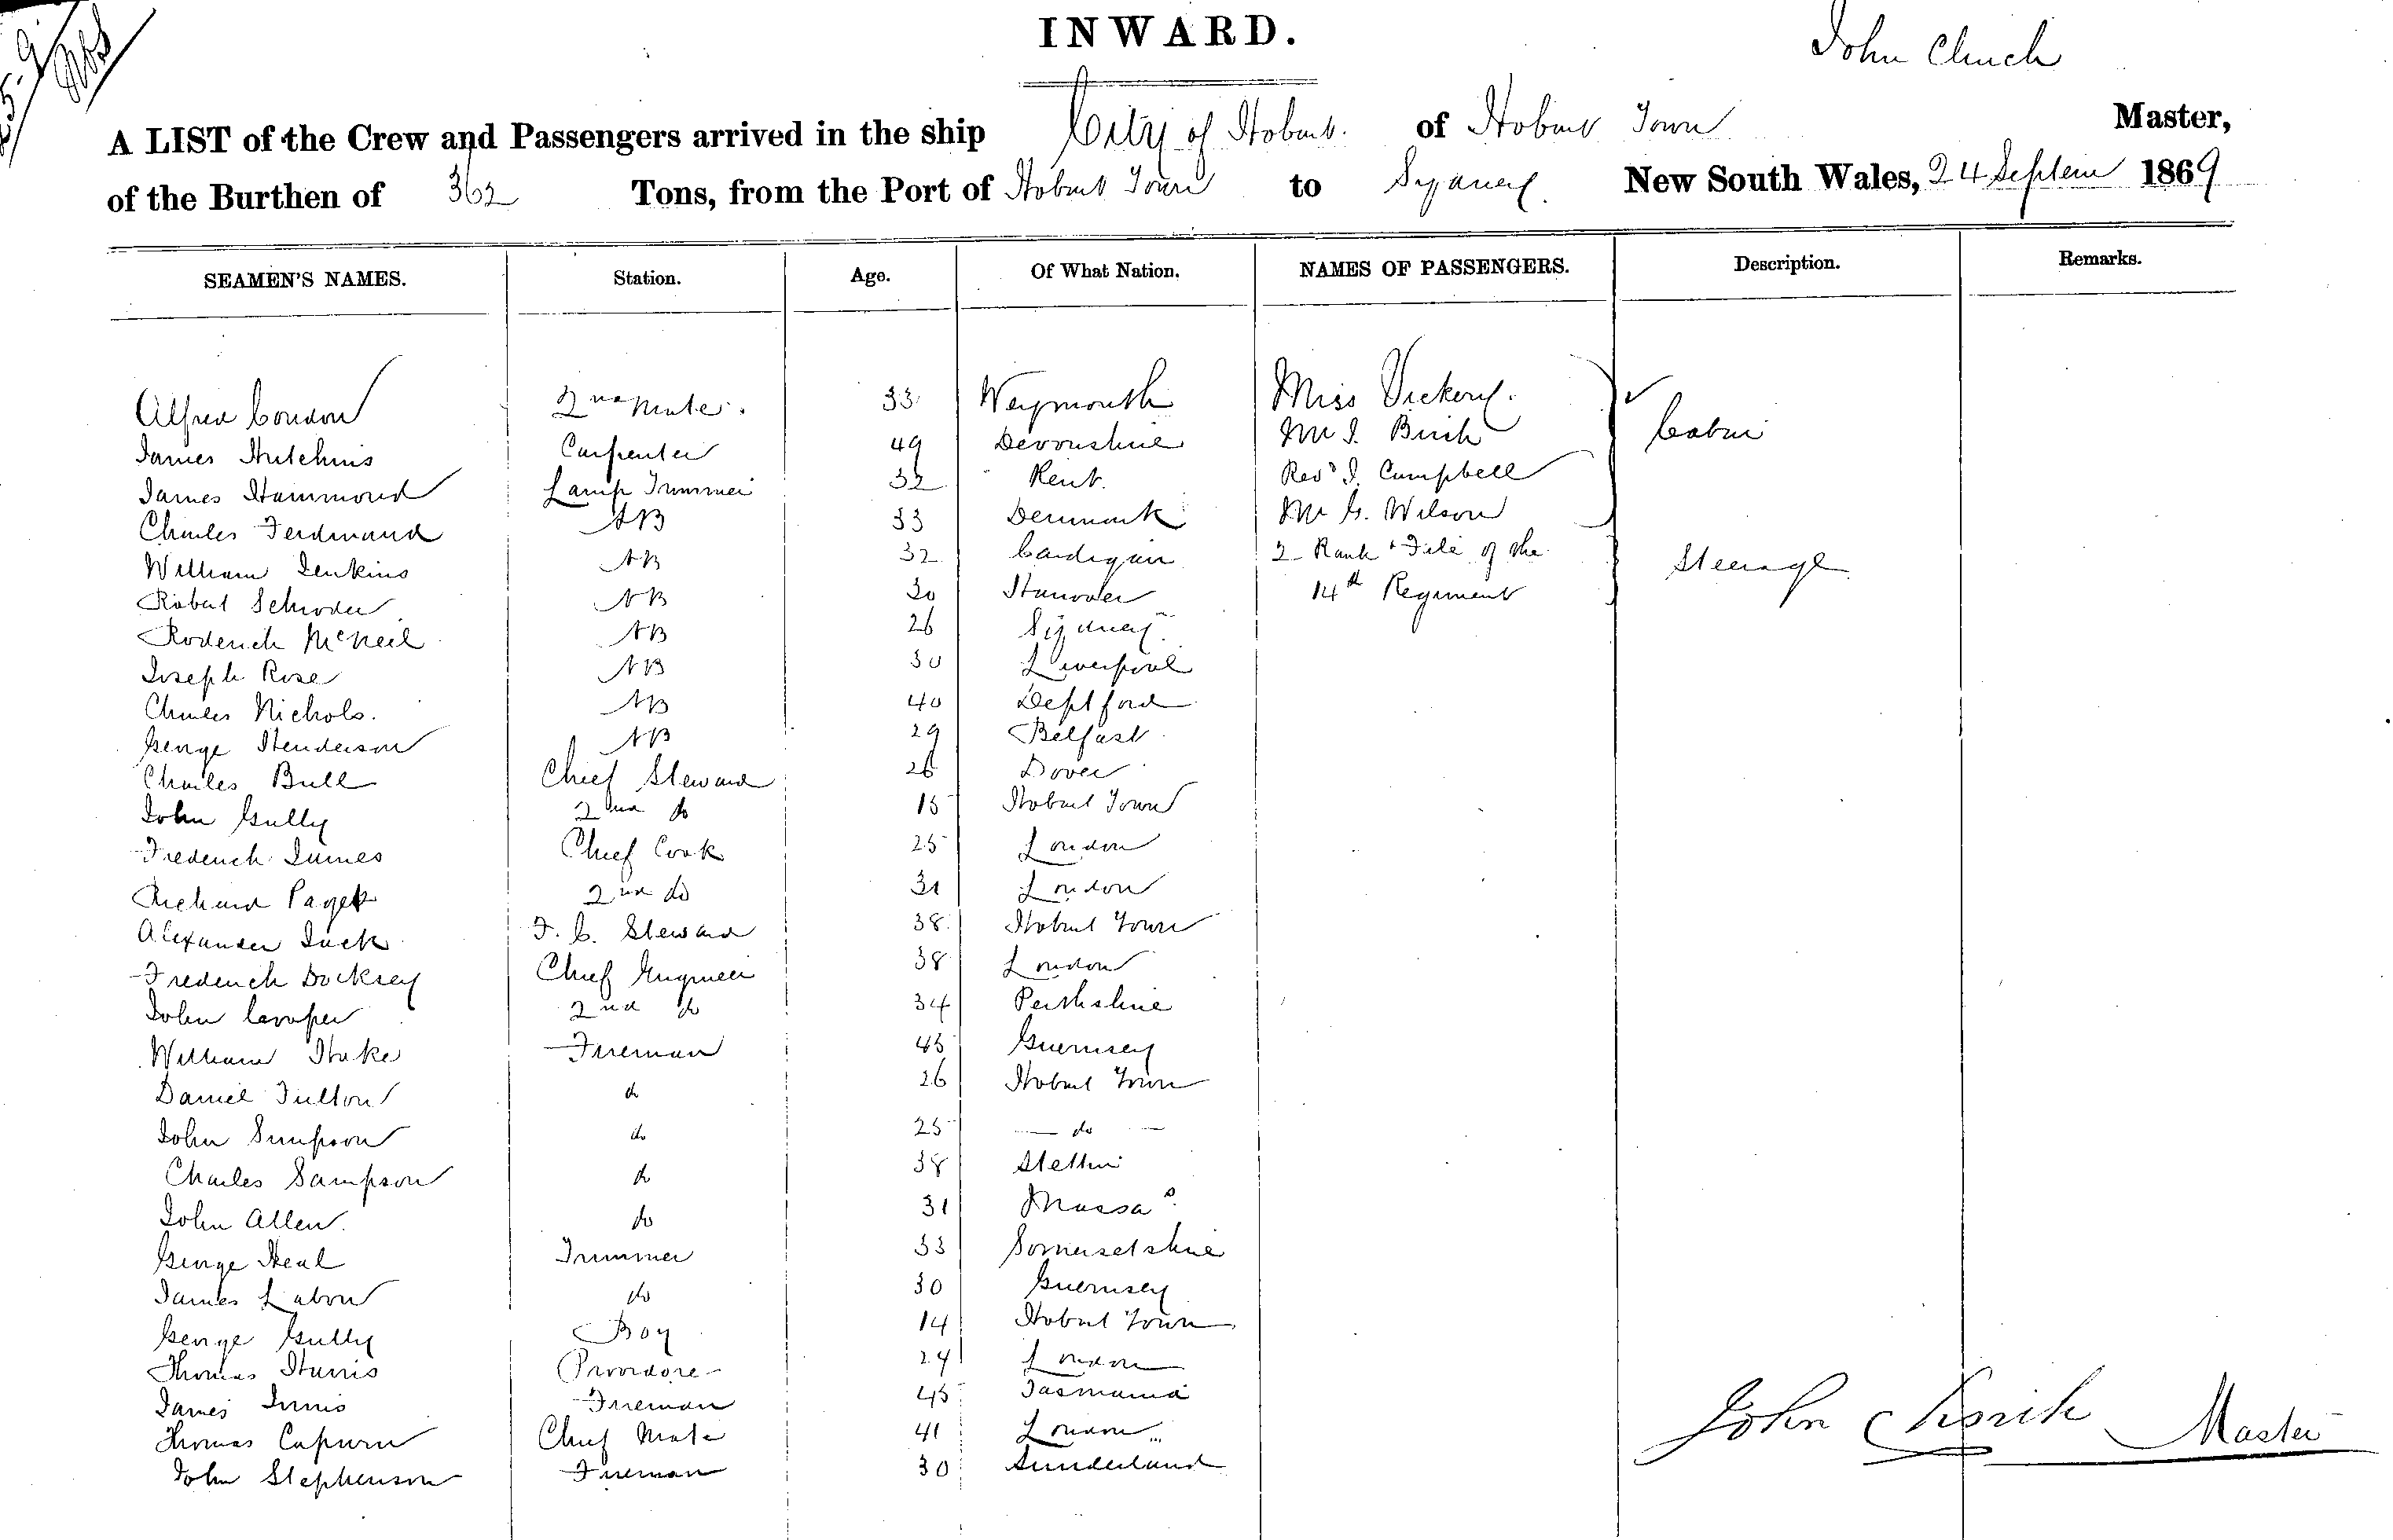 INWARD.
John Clinch
A LIST of the Crew and Passengers arrived in the ship City of Hobart. of Hobart Town Master,
of the Burthen of 362 Tons, from the Port of Hobart Town to Sydney. New South Wales, 24 Septem 1869
SEAMEN'S NAMES. Station. Age. Of What Nation. NAMES OF PASSENGERS. Description. Remarks.
Alfred Condon 2nd Mate. 33 Weymouth Miss Vickery.
James Hutchins Carpenter 49 Devonshire Mr J. Birch Cabin
James Hammond Lamp Trimmer 32 Kent. Revd J. Campbell
Charles Ferdinand AB 33 Denmark Mr G. Wilson
William Jenkins AB 32 Cardigan 2 Rank & File of the Steerage
Robert Schroder AB 30 Hanover 14th Regiment
Roderick McNeil AB 26 Sydney
Joseph Rose AB 30 Liverpool
Charles Nichols. AB 40 Deptford
George Henderson AB 29 Belfast
Charles Bull Chief Steward 26 Dover
John Gully 2nd do 15 Hobart Town
Frederick James Chief Cook 25 London
Richard Paget 2nd do 31 London
Alexander Jack F. C. Steward 38 Hobart Town
Frederick Docksey Chief Engineer 38 London
John Cooper 2nd do 34 Perthshire
William Hake Fireman 45 Guernsey
Daniel Fulton do 26 Hobart Town
John Simpson do 25 do
Charles Sampson do 38 Stettin
John Allen. do 31 Massas
George Heal Trimmer 33 Somersetshire
James Labon do 30 Guernsey
George Gully Boy 14 Hobart Town
Thomas Harris Providore 24 London
James Innis Fireman 45 Tasmania
Thomas Capurn Chief Mate 41 London
John Stephenson Fireman 30 Sunderland
John Clinch Master